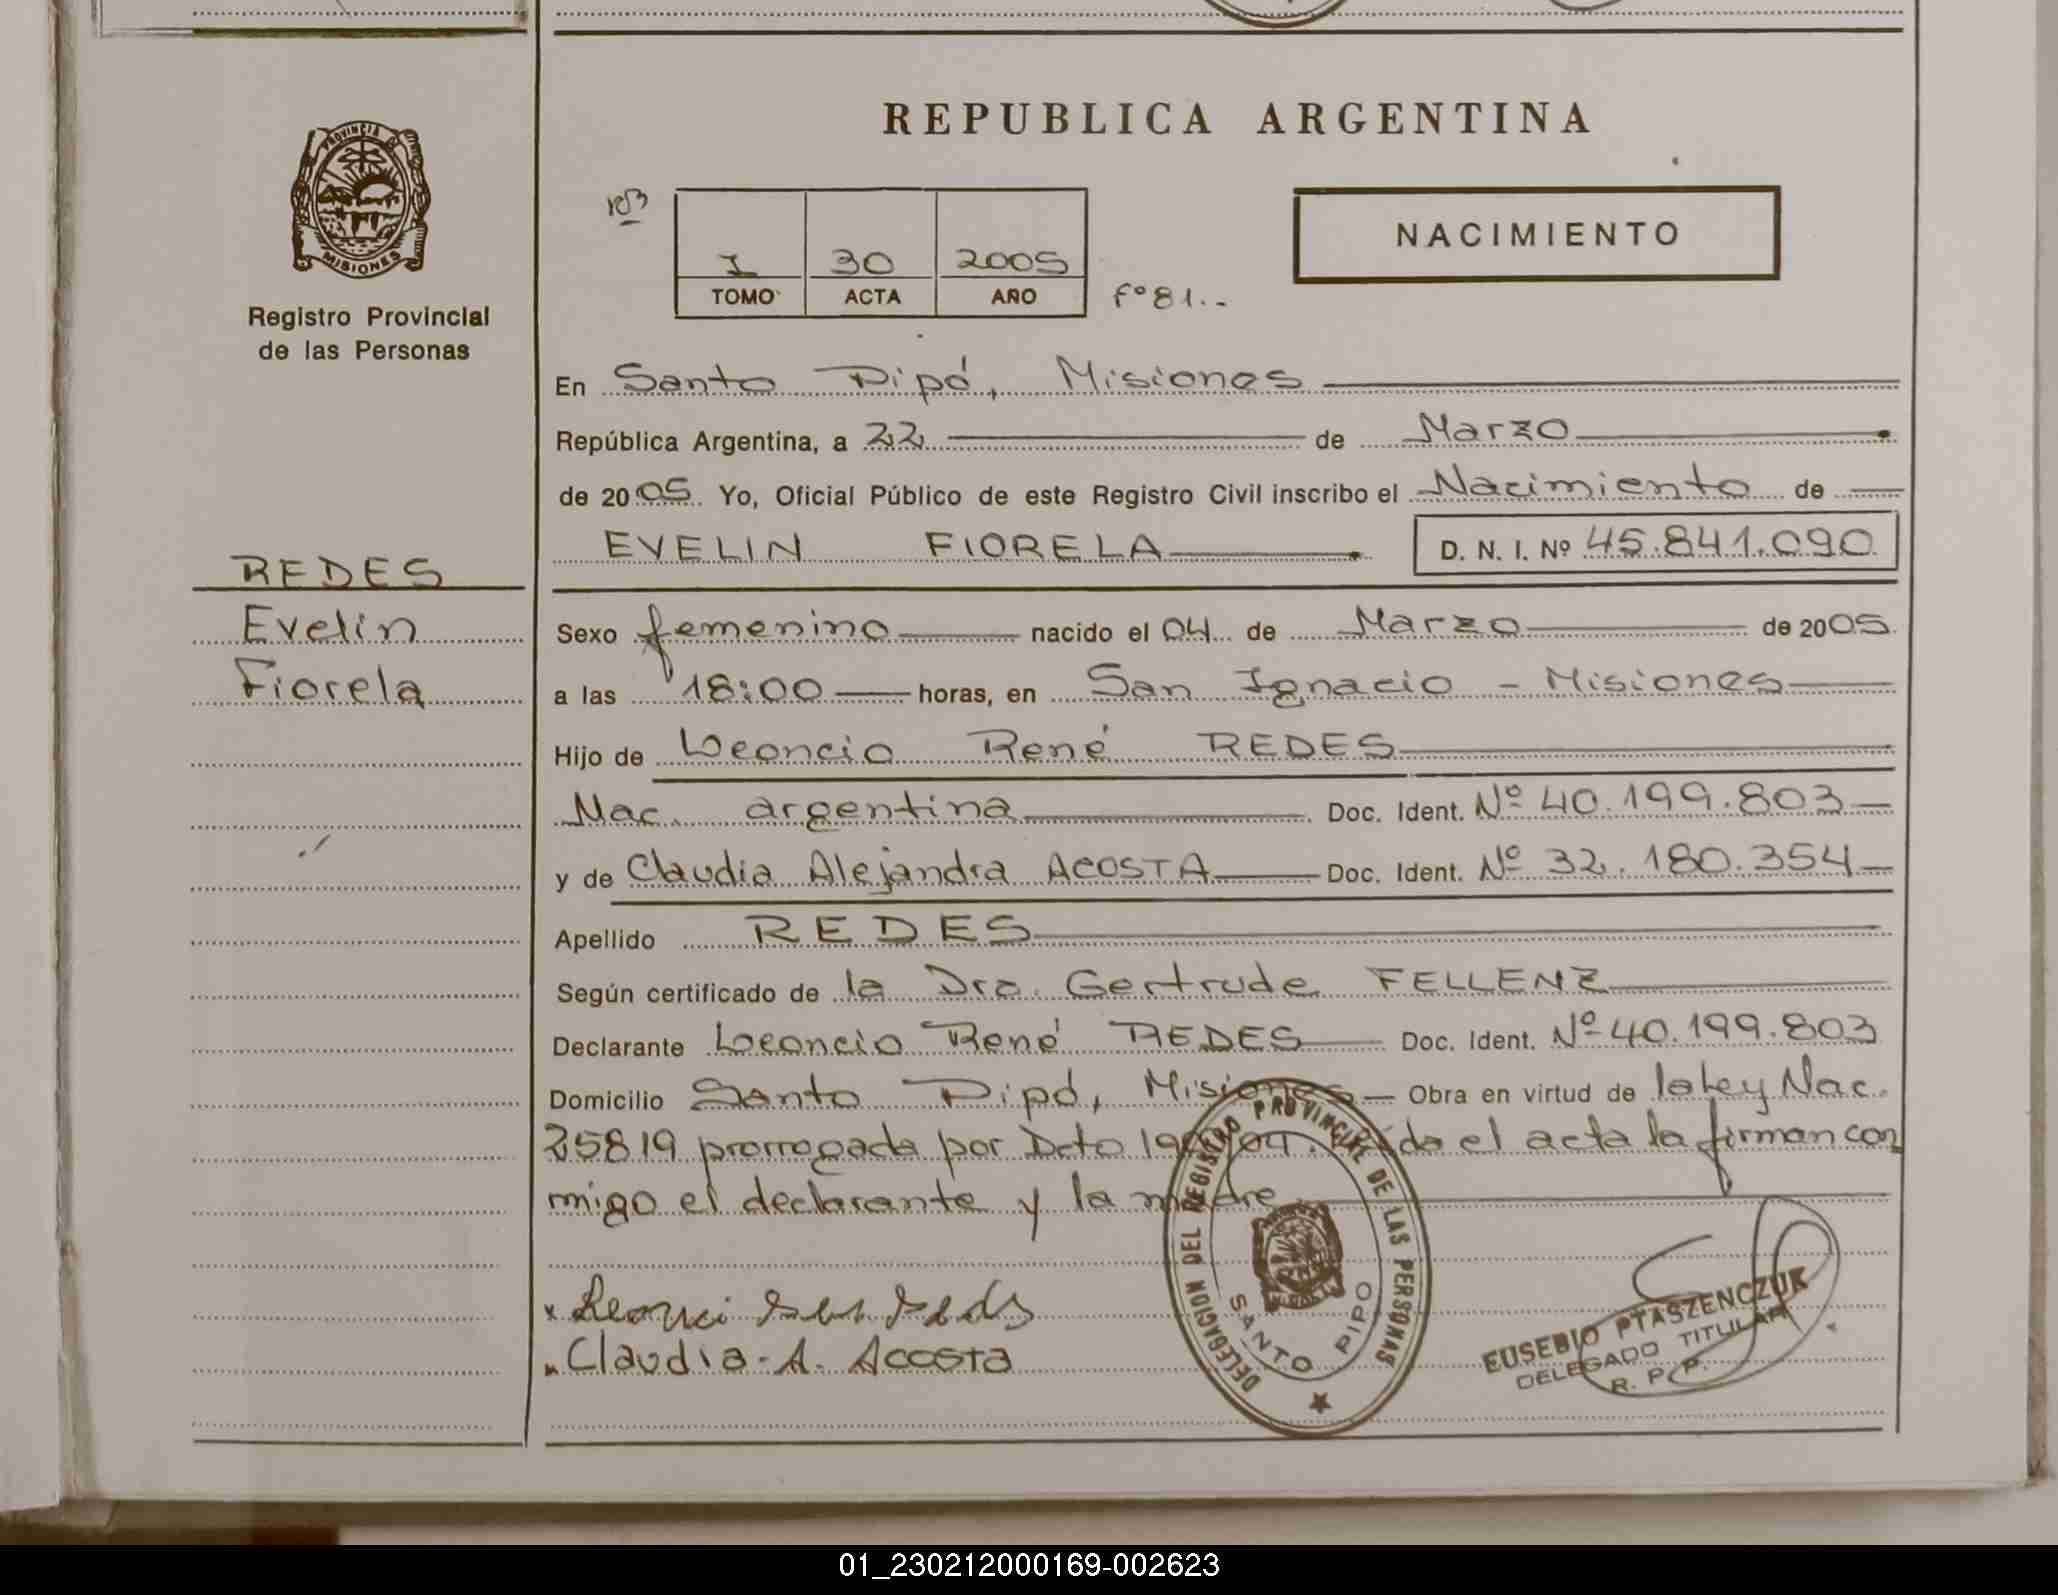 REPUBLICA ARGENTINA
PROVINCIA DE
MISIONES
Registro Provincial
de las Personas
NACIMIENTO
I 30 2005
TOMO ACTA AÑO
Fº 81.-
En Santo Pipó, Misiones
República Argentina, a 22 de Marzo
de 2005. Yo, Oficial Público de este Registro Civil inscribo el Nacimiento de
EVELIN FIORELA D. N. I. Nº 45.841.090
REDES
Evelin
Fiorela
Sexo femenino nacido el 04 de Marzo de 2005
a las 18:00 horas, en San Ignacio - Misiones
Hijo de Leoncio René REDES
Nac. argentina Doc. Ident. Nº 40.199.803
y de Claudia Alejandra ACOSTA Doc. Ident. Nº 32.180.354
Apellido REDES
Según certificado de la Dra. Gertrude FELLENZ
Declarante Leoncio René REDES Doc. Ident. Nº 40.199.803
Domicilio Santo Pipó, Misiones Obra en virtud de la Ley Nac.
25819 prorrogada por Dcto el acta la firman con
migo el declarante y la madre
Claudia. A. Acosta
DELEGACION DEL REGISTRO PROVINCIAL DE LAS PERSONAS
SANTO PIPO
EUSEBIO PTASZENCZUK
DELEGADO TITULAR
R. P. P.
01_230212000169-002623